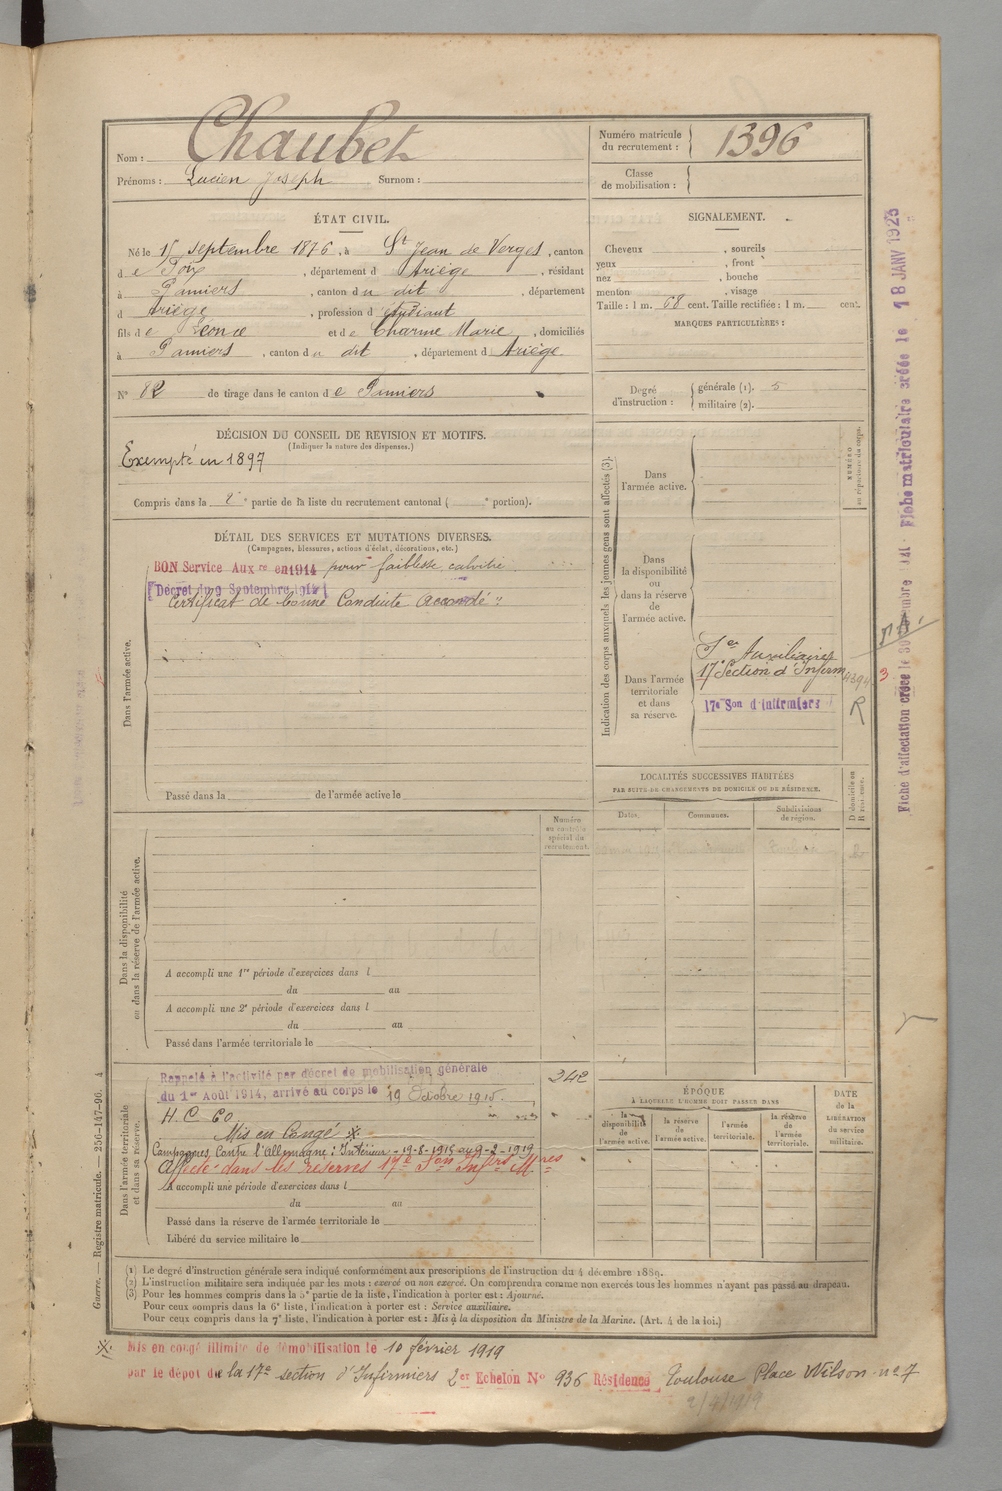 Nom : Chaubet
Prénoms : Lucien Joseph Surnom :
Numéro matricule du recrutement : 1396
Classe de mobilisation :
ÉTAT CIVIL.
Né le 15 septembre 1876, à St Jean de Verges, canton
d e Foix, département d Ariège, résidant
à Pamiers, canton d u dit, département
d Ariège, profession d étudiant
fils d e Léonce et d e Charme Marie, domiciliés
à Pamiers, canton d u dit, département d Ariège
N° 82 de tirage dans le canton d e Pamiers
SIGNALEMENT.
Cheveux , sourcils
yeux , front
nez , bouche
menton , visage
Taille : 1 m. 68 cent. Taille rectifiée : 1 m. cent.
MARQUES PARTICULIÈRES :
Degré d'instruction : générale (1). 5
militaire (2).
DÉCISION DU CONSEIL DE REVISION ET MOTIFS.
(Indiquer la nature des dispenses.)
Exempté en 1897
Compris dans la 2e partie de la liste du recrutement cantonal ( e portion).
DÉTAIL DES SERVICES ET MUTATIONS DIVERSES.
(Campagnes, blessures, actions d'éclat, décorations, etc.)
BON Service Auxre en 1914 pour faiblesse, calvitie
Décret du 9 Septembre 1914
Certificat de bonne Conduite Accordé
Dans l'armée active.
Passé dans la de l'armée active le
Indication des corps auxquels les jeunes gens sont affectés (3).
NUMÉRO au répertoire du corps.
Dans l'armée active.
Dans la disponibilité ou dans la réserve de l'armée active.
Dans l'armée territoriale et dans sa réserve.
Auxiliaires
17e Section d'Infirm
17e Son d'infirmiers
R
LOCALITÉS SUCCESSIVES HABITÉES
PAR SUITE DE CHANGEMENTS DE DOMICILE OU DE RÉSIDENCE.
Dates. Communes. Subdivisions de région. D domicile ou R résidence.
Numéro au contrôle spécial du recrutement.
Dans la disponibilité ou dans la réserve de l'armée active.
A accompli une 1re période d'exercices dans l
du au
A accompli une 2e période d'exercices dans l
du au
Passé dans l'armée territoriale le
Dans l'armée territoriale et dans sa réserve.
Rappelé à l'activité par décret de mobilisation générale
du 1er Août 1914, arrivé au corps le 19 Octobre 1915.
242
H. C 60
Mis en Congé ※
Campagnes Contre l'Allemagne : Intérieur - 19-8-1915 au 9-2-1919
Affecté dans les réserves 17e Son Infirs Mres
A accompli une période d'exercices dans l
du au
Passé dans la réserve de l'armée territoriale le
Libéré du service militaire le
ÉPOQUE
A LAQUELLE L'HOMME DOIT PASSER DANS
la disponibilité de l'armée active.
la réserve de l'armée active.
l'armée territoriale.
la réserve de l'armée territoriale.
DATE de la LIBÉRATION du service militaire.
(1) Le degré d'instruction générale sera indiqué conformément aux prescriptions de l'instruction du 4 décembre 1889.
(2) L'instruction militaire sera indiquée par les mots : exercé ou non exercé. On comprendra comme non exercés tous les hommes n'ayant pas passé au drapeau.
(3) Pour les hommes compris dans la 5e partie de la liste, l'indication à porter est : Ajourné.
Pour ceux compris dans la 6e liste, l'indication à porter est : Service auxiliaire.
Pour ceux compris dans la 7e liste, l'indication à porter est : Mis à la disposition du Ministre de la Marine. (Art. 4 de la loi.)
※ Mis en congé illimité de démobilisation le 10 février 1919
par le dépôt de la 17e section d'Infirmiers 2er Echelon N° 936 Résidence Toulouse Place Wilson n° 7
Guerre. — Registre matricule. — 256-147-96. 4
Fiche matriculaire créée le 18 JANV 1923
Fiche d'affectation créée le